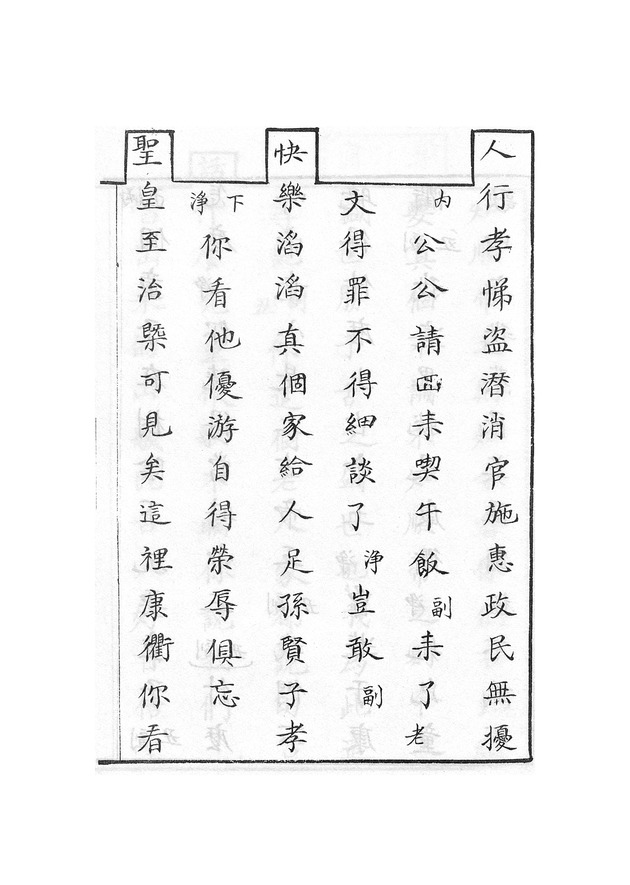 人行孝悌盜潛消官施惠政民無擾
內公公請回来喫午飯副来了老
文得罪不得細談了淨豈敢副
快樂滔滔真個家給人足孫賢子孝
下淨你看他優游自得榮辱俱忘
聖皇至治槩可見矣這裡康衢你看